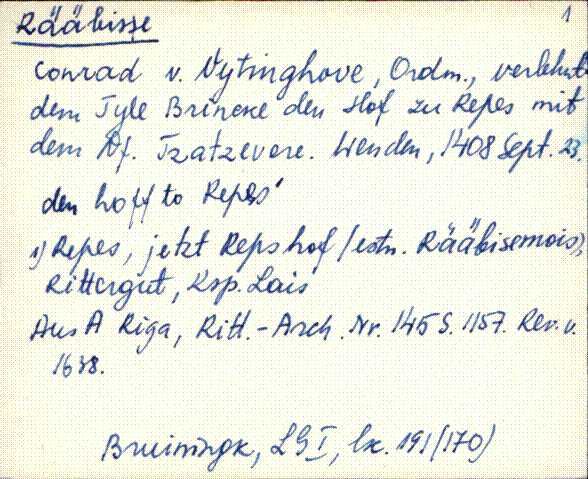 Rääbisse
1
Conrad v. Vytinghove, Ordm., verlehnt
dem Tyle Brincke den Hof zu Repes mit
dem Df. Tzatzevere. Wenden, 1408 Sept. 23.
den hoff to Repes¹
1) Repes, jetzt Repshof (estn. Rääbisemois),
Rittergut, Ksp. Lais
Aus A Riga, Ritt.-Arch. Nr. 145 S. 1157. Rev. v.
1638.
Bruiningk, LG I, lk. 191 (170)